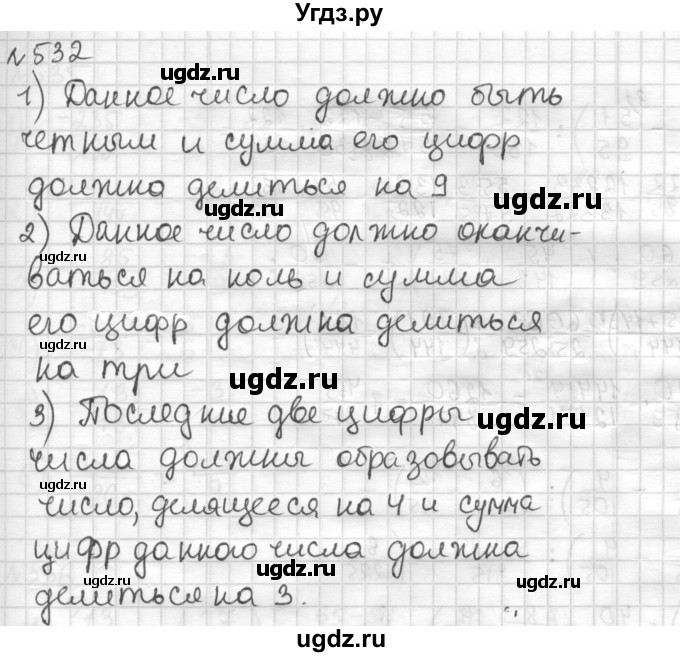 Угдз.ру
№532
ugdz.ru
1) Данное число должно быть
ugdz.ru
четным и сумма его цифр
ugdz.ru
должна делиться на 9
ugdz.ru ugdz.ru
2) Данное число должно оканчи-
ugdz.ru
ваться на ноль и сумма
ugdz.ru
его цифр должна делиться
ugdz.ru
на три
ugdz.ru
3) Последние две цифры
ugdz.ru
ugdz.ru
числа должны образовывать
ugdz.ru
число, делящееся на 4 и сумма
ugdz.ru
цифр данного числа должна
ugdz.ru ugdz.ru
делиться на 3.
ugdz.ru
ugdz.ru